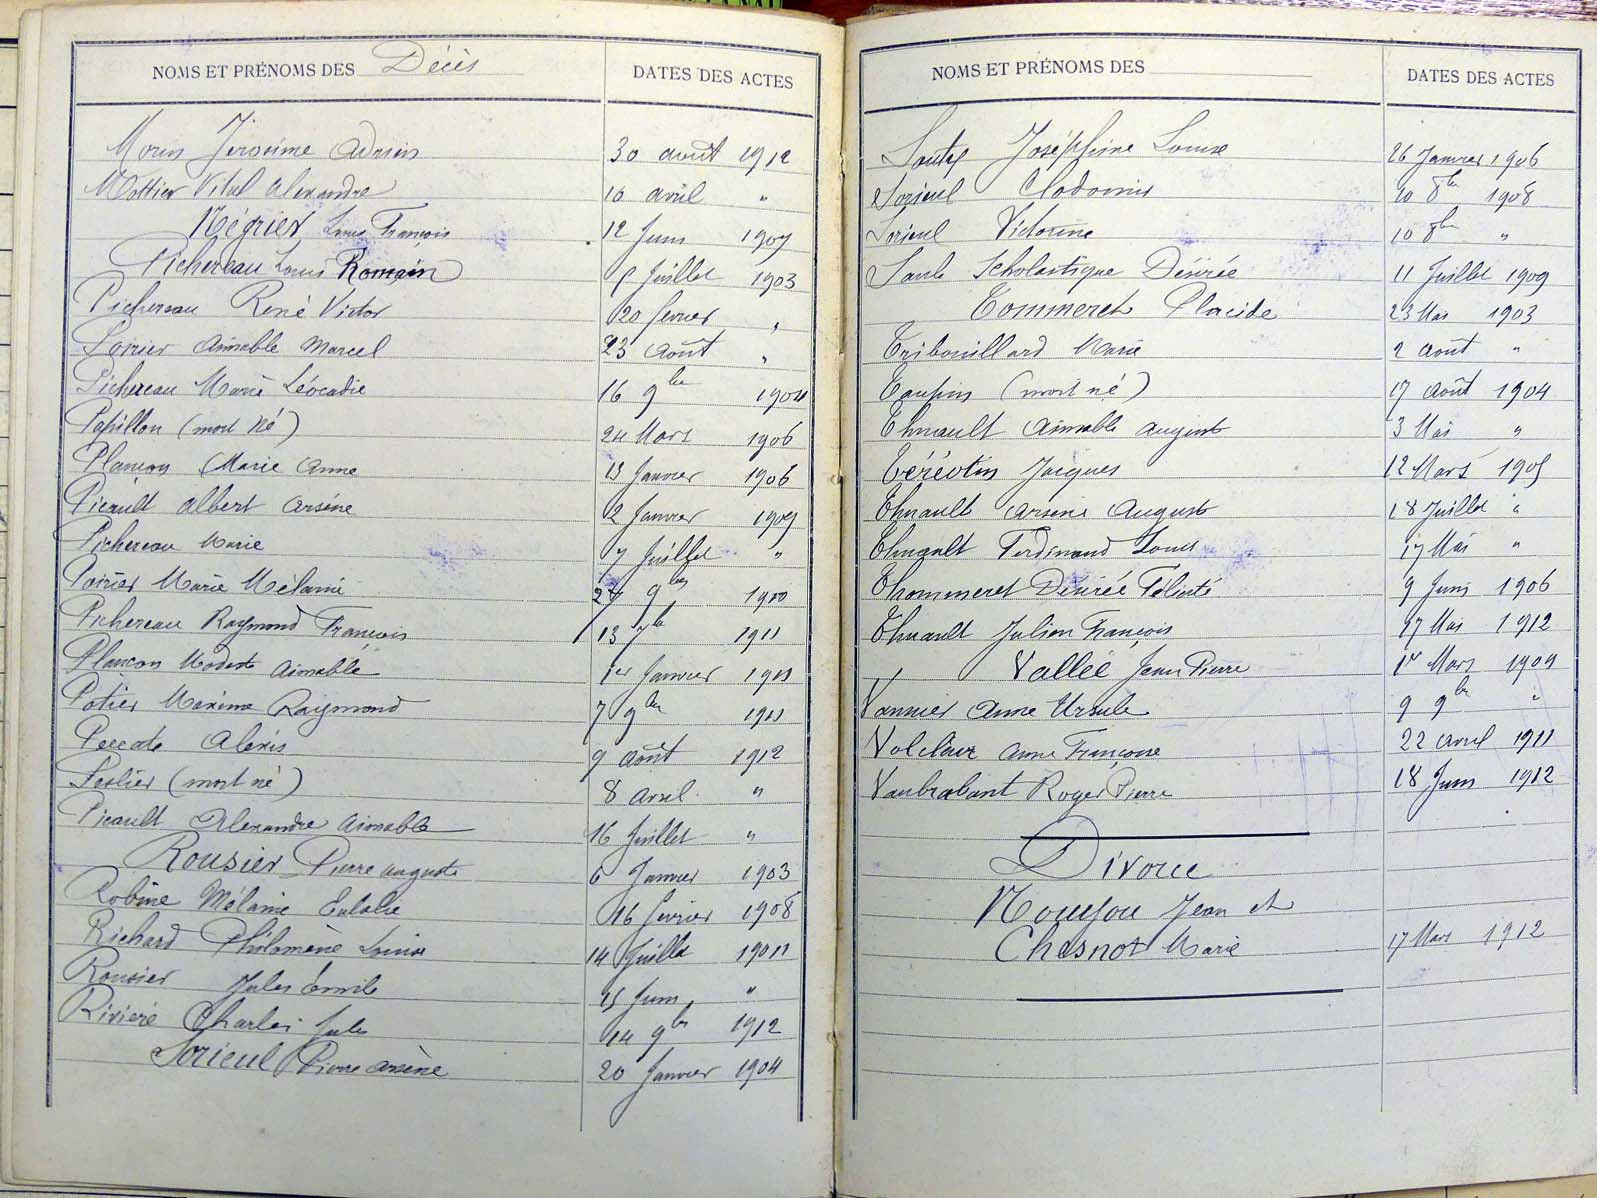 NOMS ET PRÉNOMS DES Décès DATES DES ACTES
Morin Jérosime Adrien 30 août 1912
Mottier Vital Alexandre 10 avril "
Négrier Louis François 12 Juin 1907
Pichereau Louis Romain 5 Juillet 1903
Pichereau René Victor 20 février "
Poirier Aimable Marcel 23 Août "
Pichereau Marie Léocadie 16 9bre
Papillon (mort né) 24 Mars 1906
Plançon Marie Anne 13 Janvier 1906
Picault Albert Arsène 2 Janvier 1909
Pichereau Marie 7 Juillet "
Poirier Marie Mélanie 9bre 1910
Pichereau Raymond François 13 7bre 1911
Plançon Modeste Aimable 1er Janvier 1911
Potier Maxime Raymond 7 9bre 1911
Alexis 9 Août 1912
(mort né) 8 Avril "
Picault Alexandre Aimable 16 Juillet "
Rousier Pierre Auguste 6 Janvier 1903
Robine Mélanie Eulalie 16 février 1908
Richard Philomène Louise 14 Juillet 1911
Rousier Jules Émile 15 Juin "
Rivière Charles Jules 14 9bre 1912
Sorieul Pierre Arsène 20 Janvier 1904
NOMS ET PRÉNOMS DES DATES DES ACTES
Joséphine Louise 26 Janvier 1906
Sorieul Clodomir 10 8bre 1908
Sorieul Victorine 10 8bre "
Scholastique Désirée 11 Juillet 1909
Tommeret Placide 23 Mai 1903
Tribouillard Marie 2 août "
Taupin (mort né) 17 Août 1904
Thuault Aimable August 3 Mai "
Téréotin Jacques 12 Mars 1905
Thuault Arsène August 18 Juillet "
Thuault Ferdinand Louis 17 Mai "
Thommeret Désirée Félicité 9 Juin 1906
Thuault Julien François 17 Mai 1912
Vallée Jean Pierre 1er Mars 1909
Vannier Anne Ursule 9 9bre "
Volclair Anne Françoise 22 avril 1911
Vaubrabant Roger Pierre 18 Juin 1912
Divorce
Jean et
Chesnot Marie 17 Mars 1912